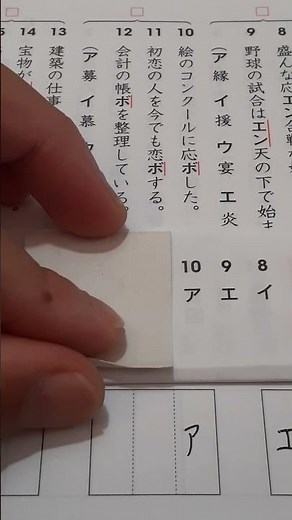 8
盛んな応エン合戦が
9
野球の試合はエン天の下で始ま
(ア 縁 イ 援 ウ 宴 エ 炎
10
絵のコンクールに応ボした。
11
初恋の人を今でも恋ボする。
12
会計の帳ボを整理している。
(ア 募 イ 慕 ウ
13
建築の仕事
14
宝物が
8 イ
9 エ
10 ア
エ
ア